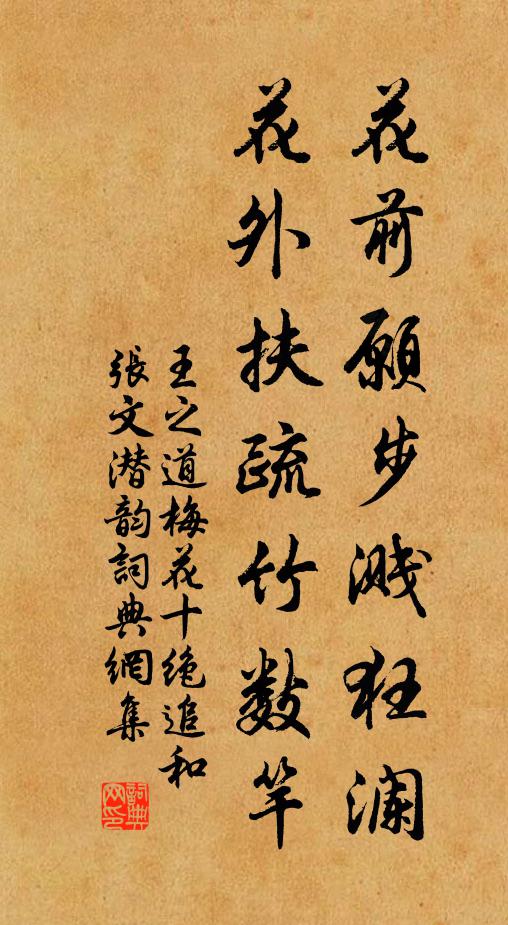 花前願步濺狂瀾
花外扶疏竹數竿
王之道梅花十絕追和
張文潛韵詞典網集
詞典
网印